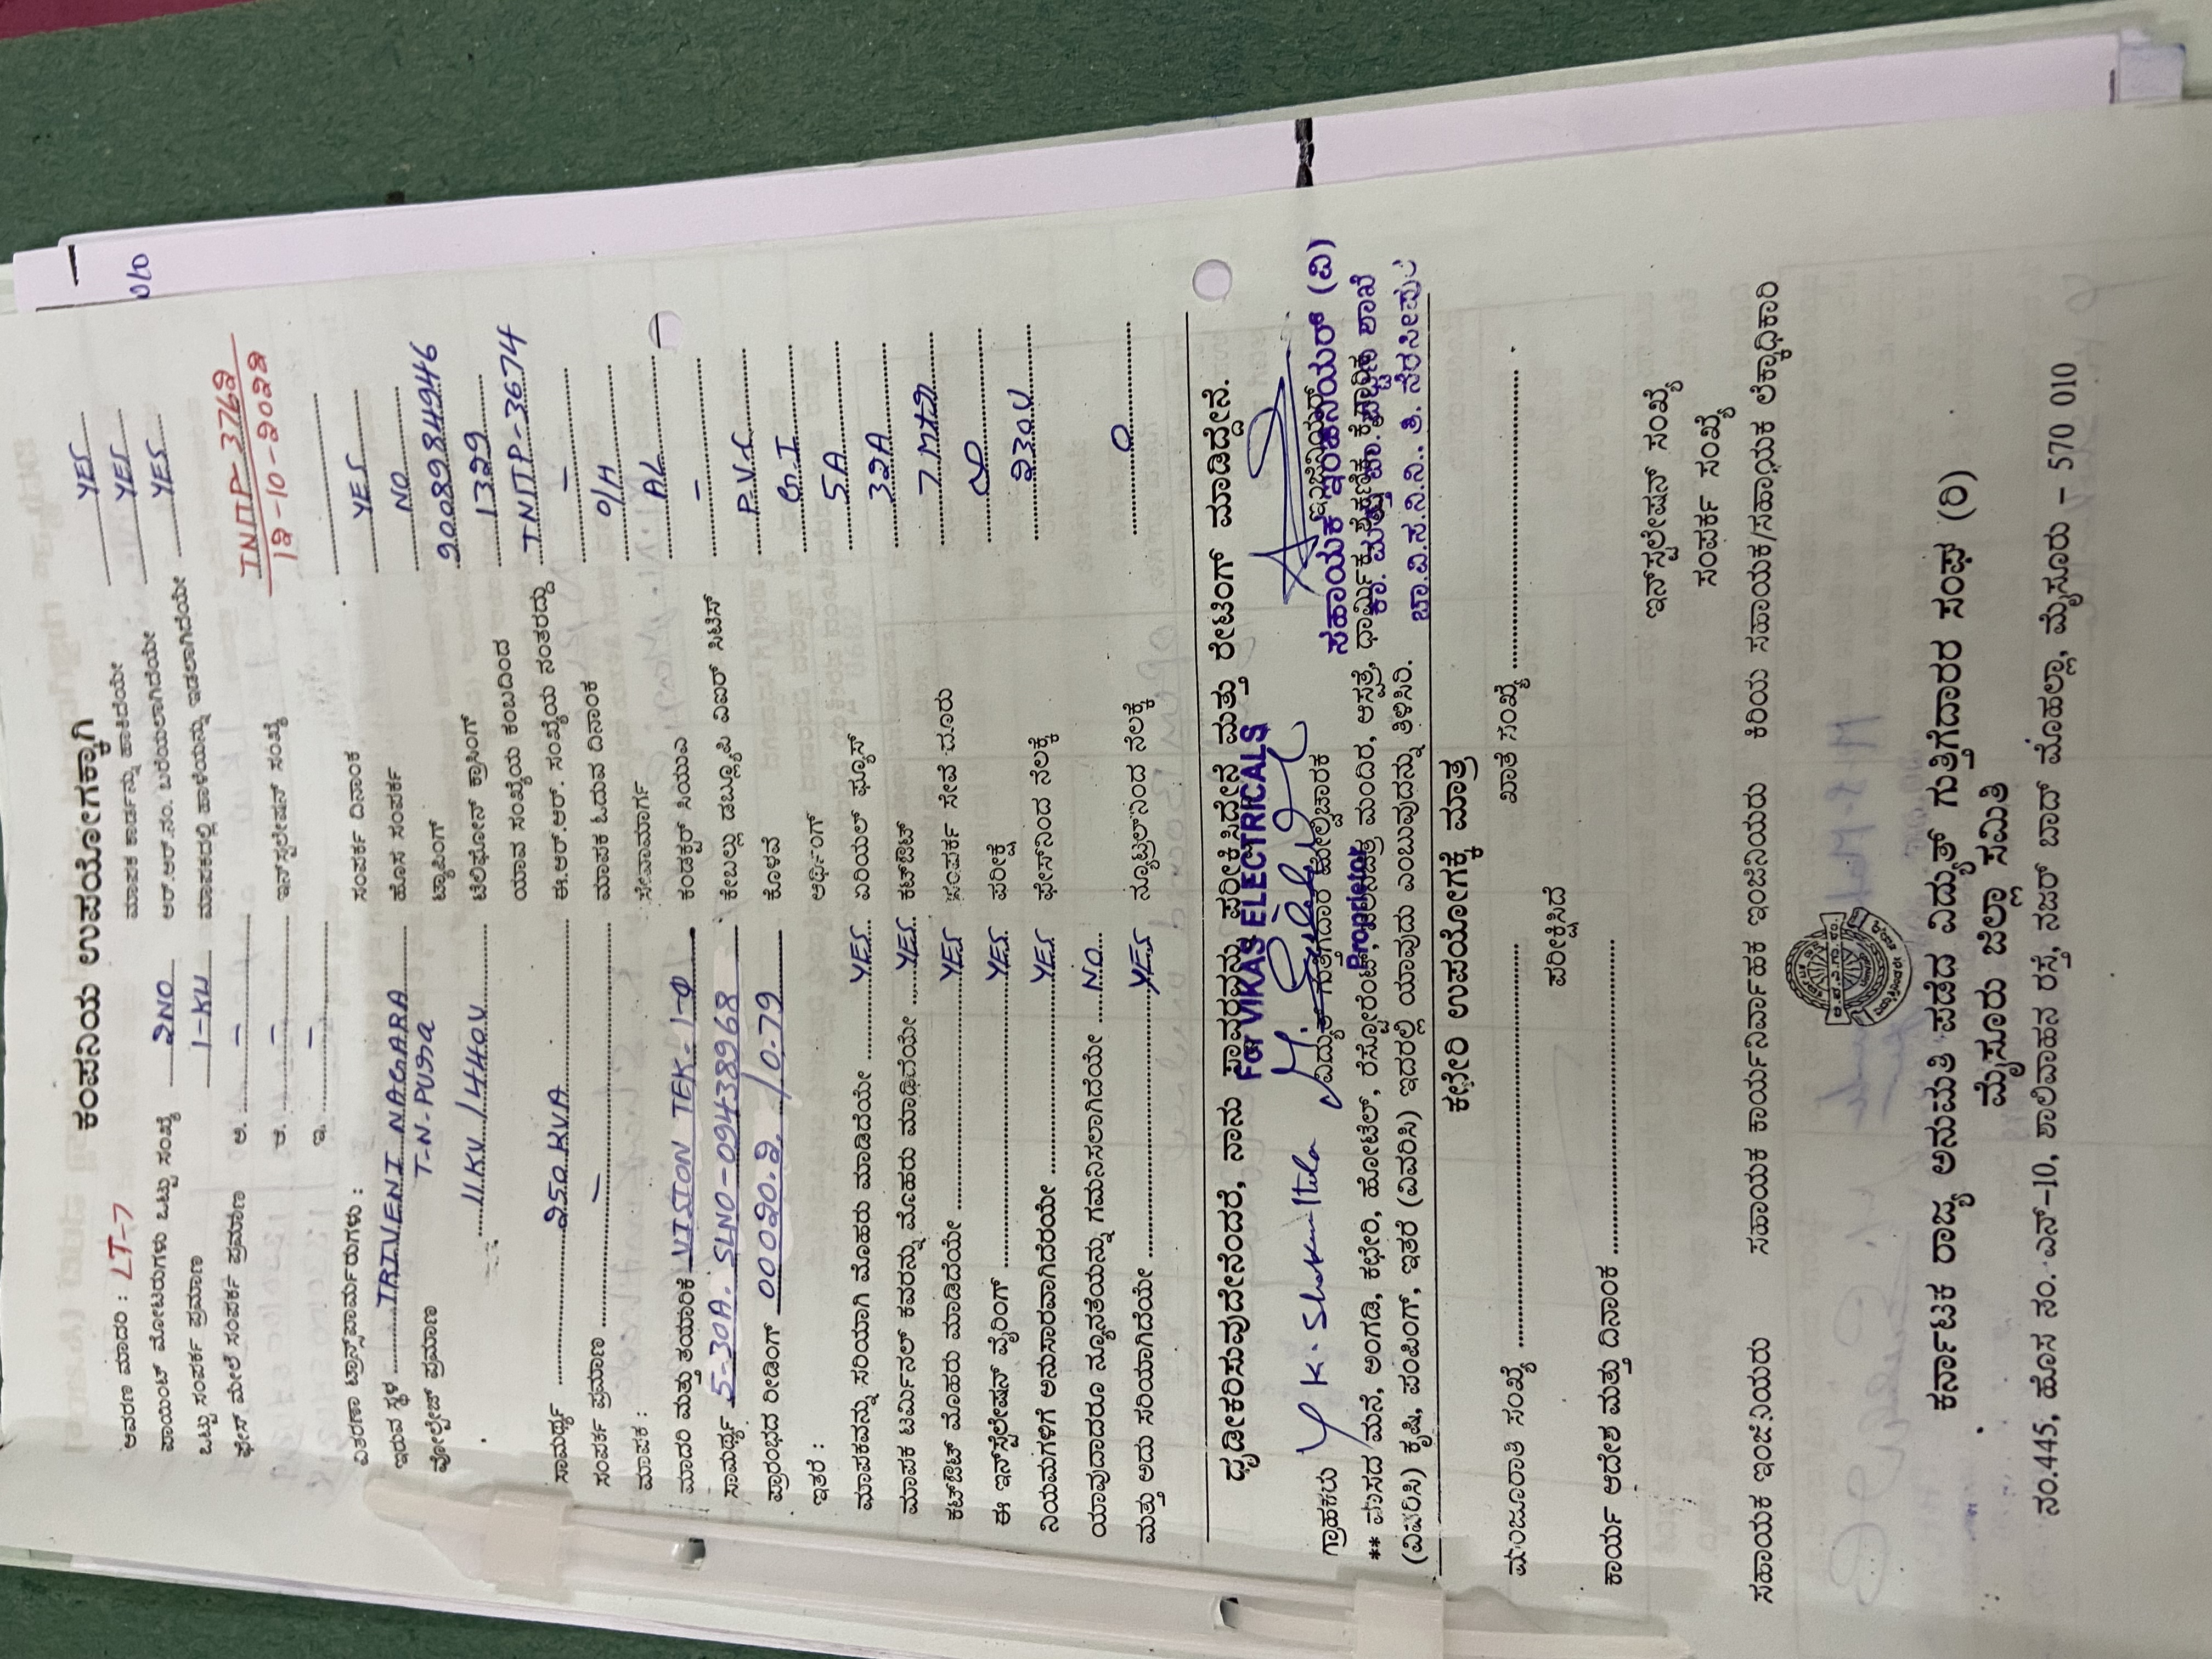 ಕಂಪನಿಯ ಉಪಯೋಗಕ್ಕಾಗಿ
ಆವರಣ ಮಾದರಿ : LT-7 ಮಾಪಕ ಕಾರ್ಡನ್ನು ಹಾಕಿದೆಯೇ YES
ಪಾಯಿಂಟ್ ಮೋಟರುಗಳು ಒಟ್ಟು ಸಂಖ್ಯೆ 2NO ಆರ್.ಆರ್.ನಂ. ಬರೆಯಲಾಗಿದೆಯೇ YES
ಒಟ್ಟು ಸಂಪರ್ಕ ಪ್ರಮಾಣ 1-KW ಮಾಪಕದಲ್ಲಿ ಹಾಳೆಯನ್ನು ಇಡಲಾಗಿದೆಯೇ YES
ಫೇಸ್ ಮೇಲೆ ಸಂಪರ್ಕ ಪ್ರಮಾಣ ಅ. –
ಆ. – ಇನ್‌ಸ್ಟಲೇಷನ್ ಸಂಖ್ಯೆ TNTP-3769
ಇ. – 12-10-2022
ವಿತರಣಾ ಟ್ರಾನ್ಸ್‌ಫಾರ್ಮರುಗಳು : ಸಂಪರ್ಕ ದಿನಾಂಕ
ಇರುವ ಸ್ಥಳ TRIVENI NAGARA ಹೊಸ ಸಂಪರ್ಕ YES
ವೋಲ್ಟೇಜ್ ಪ್ರಮಾಣ T-N-PURA ಟ್ಯಾಪಿಂಗ್ NO
11KV/440V ಟೆಲಿಫೋನ್ ಕ್ರಾಸಿಂಗ್ 9008984946
ಯಾವ ಸಂಖ್ಯೆಯ ಕಂಬದಿಂದ 1329
ಸಾಮರ್ಥ್ಯ 250 KVA ಈ.ಆರ್.ಆರ್. ಸಂಖ್ಯೆಯ ನಂತರದ್ದು TNTP-3674
ಸಂಪರ್ಕ ಪ್ರಮಾಣ – ಮಾಪಕ ಓದುವ ದಿನಾಂಕ –
ಮಾಪಕ : ಸೇವಾಮಾರ್ಗ O/H
ಮಾದರಿ ಮತ್ತು ತಯಾರಿಕೆ VISION TEK-1-Φ ಕಂಡಕ್ಟರ್ ಸಿಯುಎ AL
ಸಾಮರ್ಥ್ಯ 5-30A. SLNO-09438968 ಕೇಬಲ್ಲು ಡಬ್ಲ್ಯೂಪಿ ವಿಐಆರ್ ಸಿಟಿಎಸ್ –
ಪ್ರಾರಂಭದ ರೀಡಿಂಗ್ 00020.2. /0-79 ಕೊಳವೆ P.V.C
ಇತರೆ : ಅರ್ಥಿಂಗ್ G.I
ಮಾಪಕವನ್ನು ಸರಿಯಾಗಿ ಮೊಹರು ಮಾಡಿದೆಯೇ YES ಏರಿಯಲ್ ಫ್ಯೂಸ್ 5A
ಮಾಪಕ ಟರ್ಮಿನಲ್ ಕವರನ್ನು ಮೊಹರು ಮಾಡಿದೆಯೇ YES ಕಟ್‌ಔಟ್ 32A
ಕಟ್‌ಔಟ್ ಮೊಹರು ಮಾಡಿದೆಯೇ YES ಸಂಪರ್ಕ ಸೇವೆ ದೂರು 7 MTR
ಈ ಇನ್‌ಸ್ಟಲೇಷನ್ ವೈರಿಂಗ್ YES ಪರೀಕ್ಷೆ
ನಿಯಮಗಳಿಗೆ ಅನುಸಾರವಾಗಿದೆಯೇ YES ಫೇಸ್‌ನಿಂದ ನೆಲಕ್ಕೆ 230V
ಯಾವುದಾದರೂ ನ್ಯೂನತೆಯನ್ನು ಗಮನಿಸಲಾಗಿದೆಯೇ NO
ಮತ್ತು ಅದು ಸರಿಯಾಗಿದೆಯೇ YES ನ್ಯೂಟ್ರಲ್‌ನಿಂದ ನೆಲಕ್ಕೆ 0
ಧೃಡೀಕರಿಸುವುದೇನೆಂದರೆ, ನಾನು ಸ್ಥಾವರವನ್ನು ಪರೀಕ್ಷಿಸಿದ್ದೇನೆ ಮತ್ತು ರೇಟಿಂಗ್ ಮಾಡಿದ್ದೇನೆ.
For VIKAS ELECTRICALS
ಗ್ರಾಹಕರು ವಿದ್ಯುತ್ ಗುತ್ತಿಗೆದಾರ ಮೇಲ್ವಿಚಾರಕ ಇಂಜಿನಿಯರ್
Proprietor
ಸಹಾಯಕ ಇಂಜಿನಿಯರ್ (ವಿ)
ಚಾ.ವಿ.ಸ.ನಿ.ನಿ., ತಿ. ನರಸೀಪುರ
** ವಾಸದ ಮನೆ, ಅಂಗಡಿ, ಕಛೇರಿ, ಹೋಟೆಲ್, ರೆಸ್ಟೋರೆಂಟ್, ಚಲನಚಿತ್ರ ಮಂದಿರ, ಆಸ್ಪತ್ರೆ, ಧಾರ್ಮಿಕ
(ವಿವರಿಸಿ) ಕೃಷಿ, ಪಂಪಿಂಗ್, ಇತರೆ (ವಿವರಿಸಿ) ಇದರಲ್ಲಿ ಯಾವುದು ಎಂಬುವುದನ್ನು ತಿಳಿಸಿರಿ.
ಕಛೇರಿ ಉಪಯೋಗಕ್ಕೆ ಮಾತ್ರ
ಮಂಜೂರಾತಿ ಸಂಖ್ಯೆ ಖಾತೆ ಸಂಖ್ಯೆ
ಪರೀಕ್ಷಿಸಿದೆ
ಕಾರ್ಯ ಆದೇಶ ಮತ್ತು ದಿನಾಂಕ
ಇನ್‌ಸ್ಟಲೇಷನ್ ಸಂಖ್ಯೆ
ಸಂಪರ್ಕ ಸಂಖ್ಯೆ
ಸಹಾಯಕ ಇಂಜಿನಿಯರು ಸಹಾಯಕ ಕಾರ್ಯನಿರ್ವಾಹಕ ಇಂಜಿನಿಯರು ಕಿರಿಯ ಸಹಾಯಕ/ಸಹಾಯಕ ಲೆಕ್ಕಾಧಿಕಾರಿ
ಕರ್ನಾಟಕ ರಾಜ್ಯ ಅನುಮತಿ ಪಡೆದ ವಿದ್ಯುತ್ ಗುತ್ತಿಗೆದಾರರ ಸಂಘ (ರಿ)
ಮೈಸೂರು ಜಿಲ್ಲಾ ಸಮಿತಿ
ನಂ.445, ಹೊಸ ನಂ. ಎನ್-10, ಶಾಲಿವಾಹನ ರಸ್ತೆ, ನಜರ್ ಬಾದ್ ಮೊಹಲ್ಲಾ, ಮೈಸೂರು – 570 010